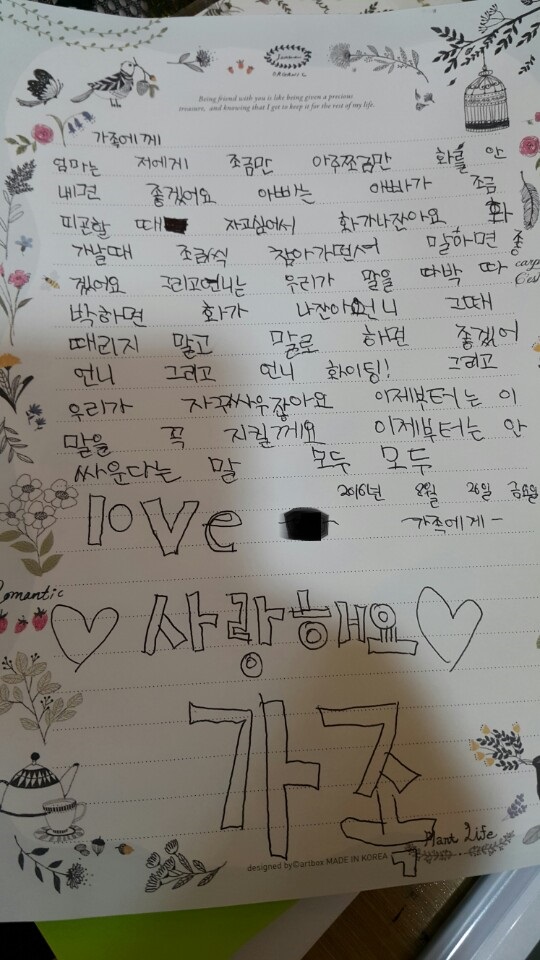 Being friend with you is like being given a precious
treasure, and knowing that I get to keep it for the rest of my life.
가족에게
엄마는 저에게 조금만 아주쪼금만 화를 안
내면 좋겠어요 아빠는 아빠가 조금
피곤할 때 자고싶어서 화가나잖아요 화
가날때 조금씩 참아가면서 말하면 좋
겠어요 그리고언니는 우리가 말을 따박 따
박하면 화가 나잖아언니 그때
때리지 말고 말로 하면 좋겠어
언니 그러고 언니 화이팅! 그러고
우리가 자꾸싸우잖아요 이제부터는 이
말을 꼭 지킬께요 이제부터는 안
싸운다는 말 모두 모두
2016년 8월 26일 금요일
love
-가족에게-
Romantic
사랑해요
가족
Plant Life
designed by©artbox MADE IN KOREA